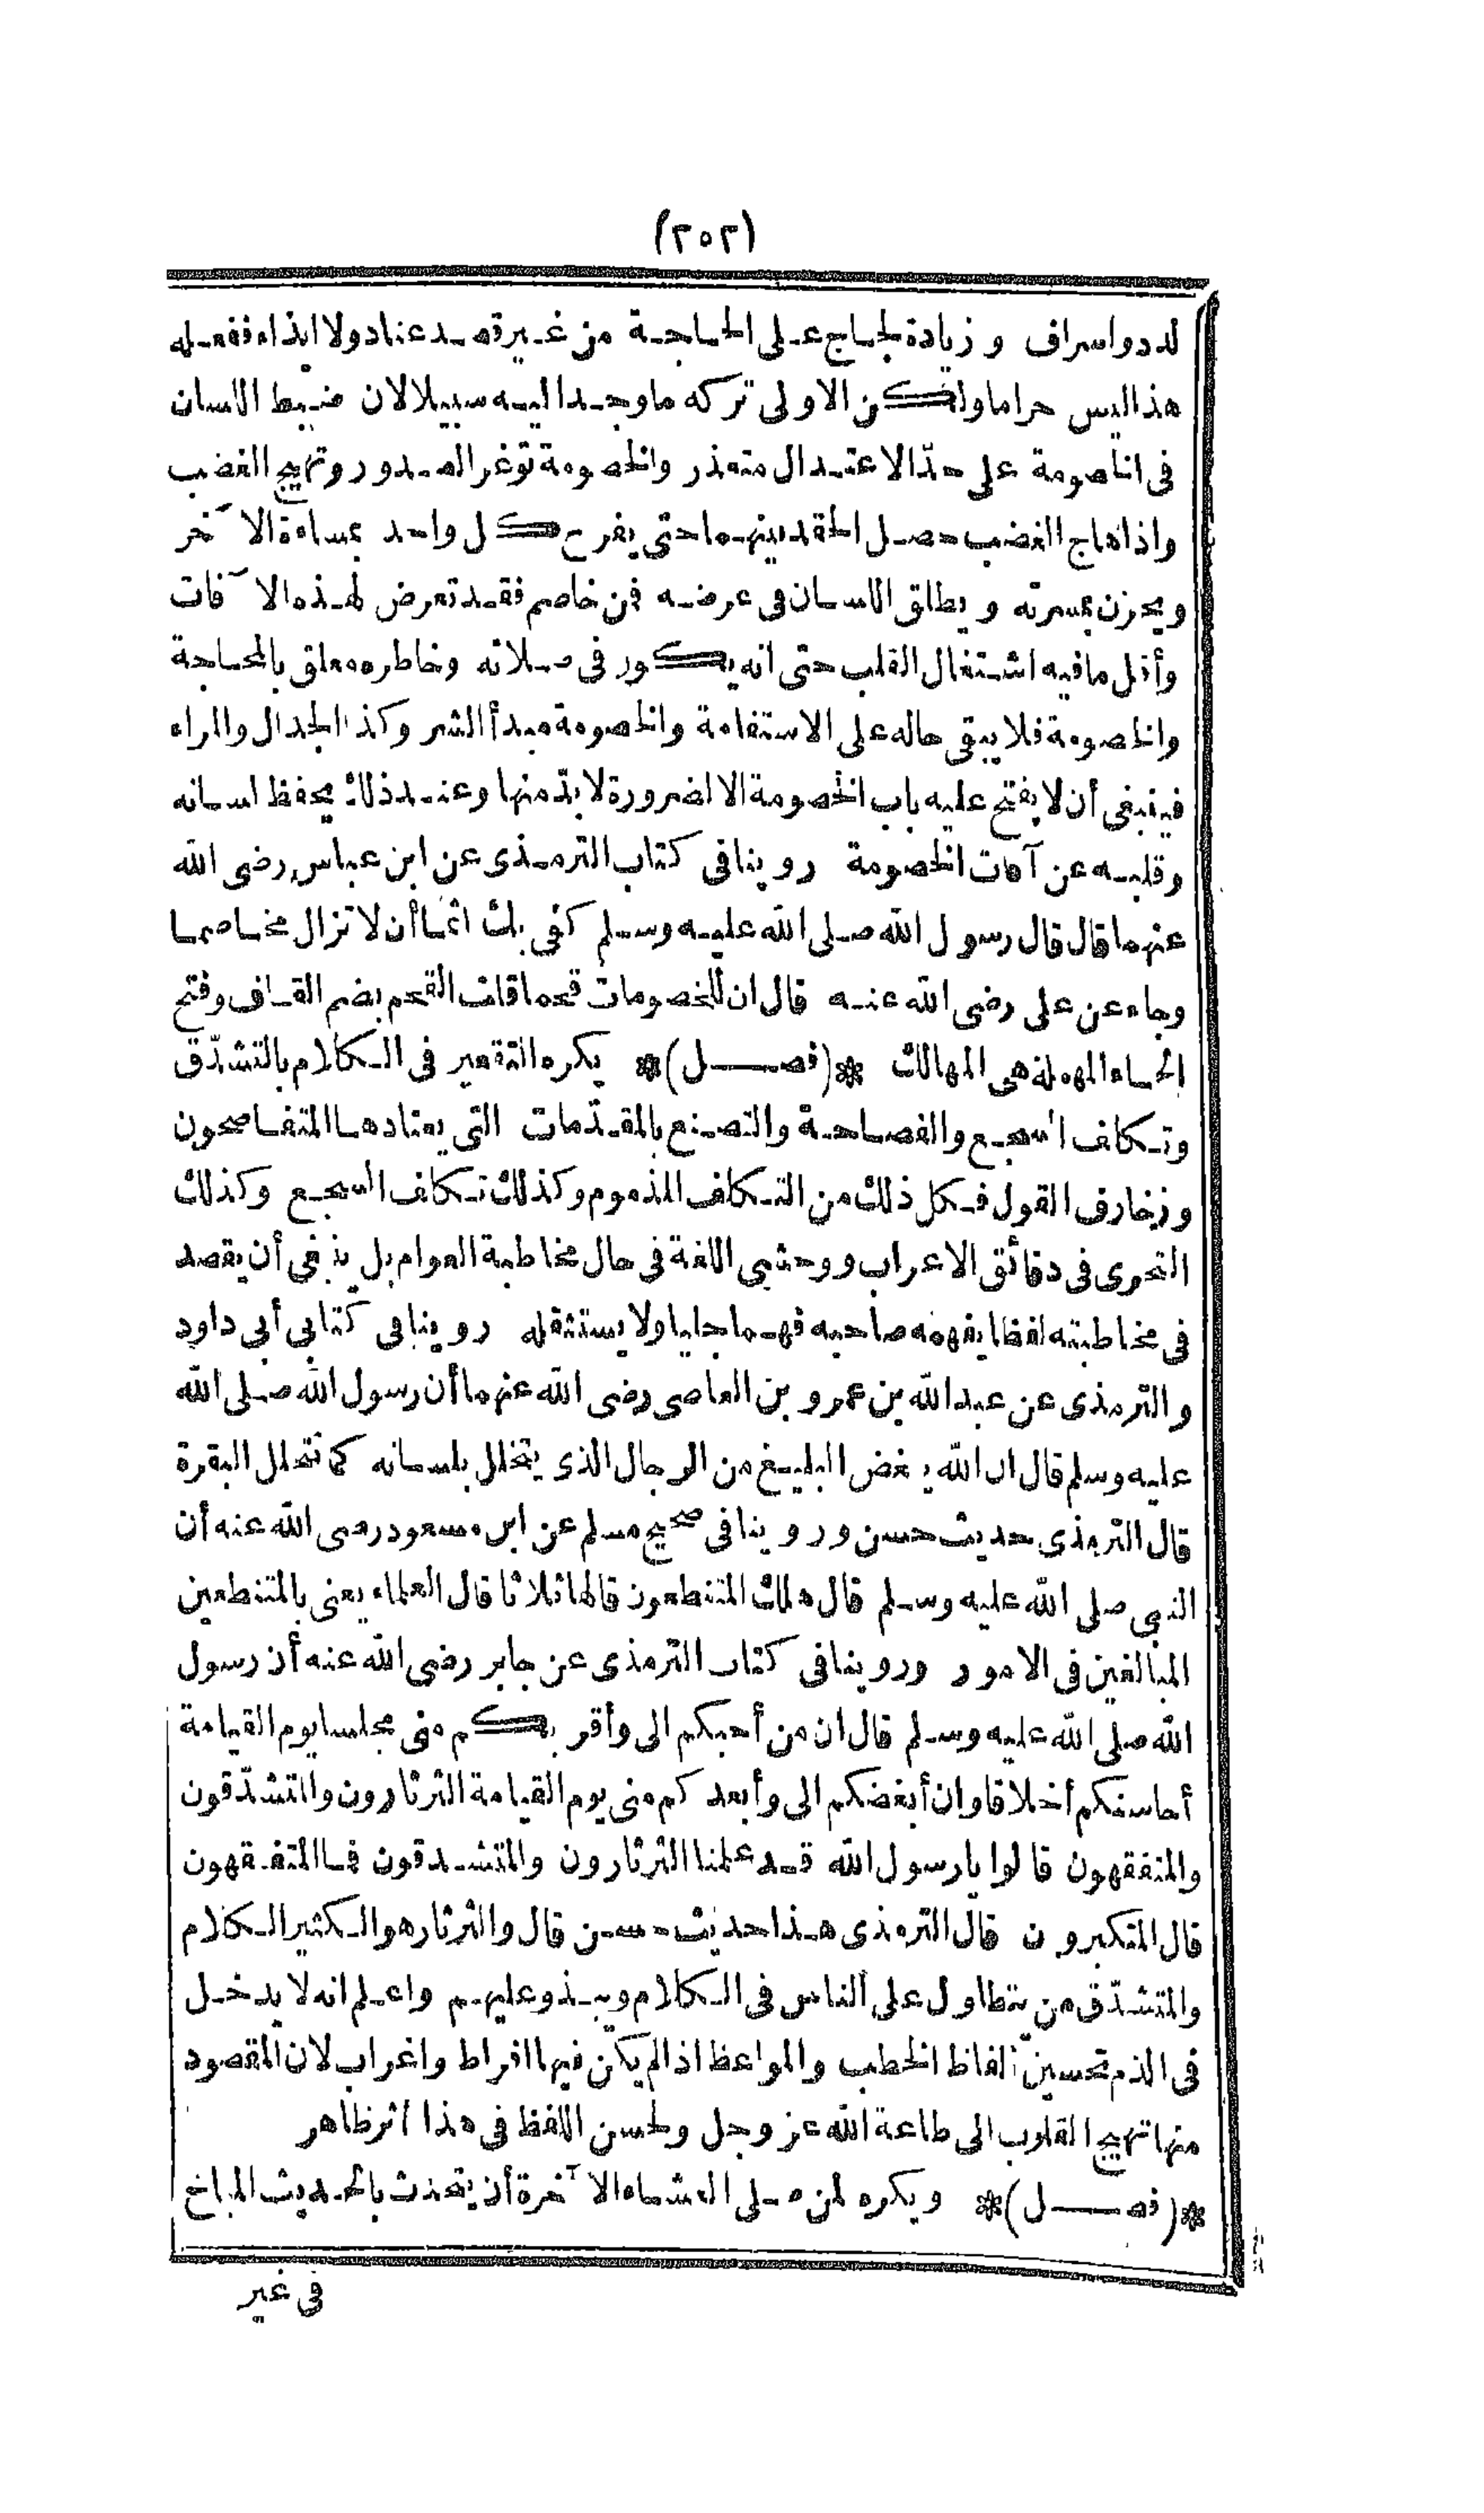 (٢٥٢)
لدد واسراف وزيادة لجاج على الحاجة من غير قصد عناد ولا ايذاء ففعله
هذا ليس حراما ولكن الاولى تركه ما وجد اليه سبيلا لان ضبط اللسان
فى الخصومة على حدّ الاعتدال متعذر والخصومة توغر الصدور وتهيج الغضب
واذا هاج الغضب حصل الحقد بينهما حتى يفرح كل واحد بمساءة الآخر
ويحزن بمسرته ويطلق اللسان فى عرضه فمن خاصم فقد تعرض لهذه الآفات
وأقل ما فيه اشتغال القلب حتى انه يكون فى صلاته وخاطره معلق بالمحاجة
والخصومة فلا يبقى حاله على الاستقامة والخصومة مبدأ الشر وكذا الجدال والمراء
فينبغى أن لا يفتح عليه باب الخصومة الا لضرورة لا بدّ منها وعند ذلك يحفظ لسانه
وقلبه عن آفات الخصومة روينا فى كتاب الترمذى عن ابن عباس رضى الله
عنهما قال قال رسول الله صلى الله عليه وسلم كفى بك اثما أن لا تزال مخاصما
وجاء عن على رضى الله عنه قال ان للخصومات قحما قلت القحم بضم القاف وفتح
الحاء المهملة هى المهالك *(فصل)* يكره التقعير فى الكلام بالتشدّق
وتكلف السجع والفصاحة والتصنع بالمقدّمات التى يعتادها المتفاصحون
وزخارف القول فكل ذلك من التكلف المذموم وكذلك تكلف السجع وكذلك
التحرى فى دقائق الاعراب ووحشى اللغة فى حال مخاطبة العوام بل ينبغى أن يقصد
فى مخاطبته لفظا يفهمه صاحبه فهما جليا ولا يستثقله روينا فى كتابى أبى داود
والترمذى عن عبد الله بن عمرو بن العاصى رضى الله عنهما أن رسول الله صلى الله
عليه وسلم قال ان الله يبغض البليغ من الرجال الذى يتخلل بلسانه كما تتخلل البقرة
قال الترمذى حديث حسن وروينا فى صحيح مسلم عن ابن مسعود رضى الله عنه أن
النبى صلى الله عليه وسلم قال هلك المتنطعون قالها ثلاثا قال العلماء يعنى بالمتنطعين
المبالغين فى الامور وروينا فى كتاب الترمذى عن جابر رضى الله عنه أن رسول
الله صلى الله عليه وسلم قال ان من أحبكم الى وأقربكم منى مجلسا يوم القيامة
أحاسنكم أخلاقا وان أبغضكم الى وأبعدكم منى يوم القيامة الثرثارون والمتشدّقون
والمتفيقهون قالوا يا رسول الله قد علمنا الثرثارون والمتشدقون فما المتفيقهون
قال المتكبرون قال الترمذى هذا حديث حسن قال والثرثار هو الكثير الكلام
والمتشدّق من يتطاول على الناس فى الكلام ويبذو عليهم واعلم انه لا يدخل
فى الذم تحسين ألفاظ الخطب والمواعظ اذا لم يكن فيها افراط واغراب لان المقصود
منها تهييج القلوب الى طاعة الله عز وجل ولحسن اللفظ فى هذا أثر ظاهر
*(فصل)* ويكره لمن صلى العشاء الآخرة أن يتحدث بالحديث المباح
فى غير